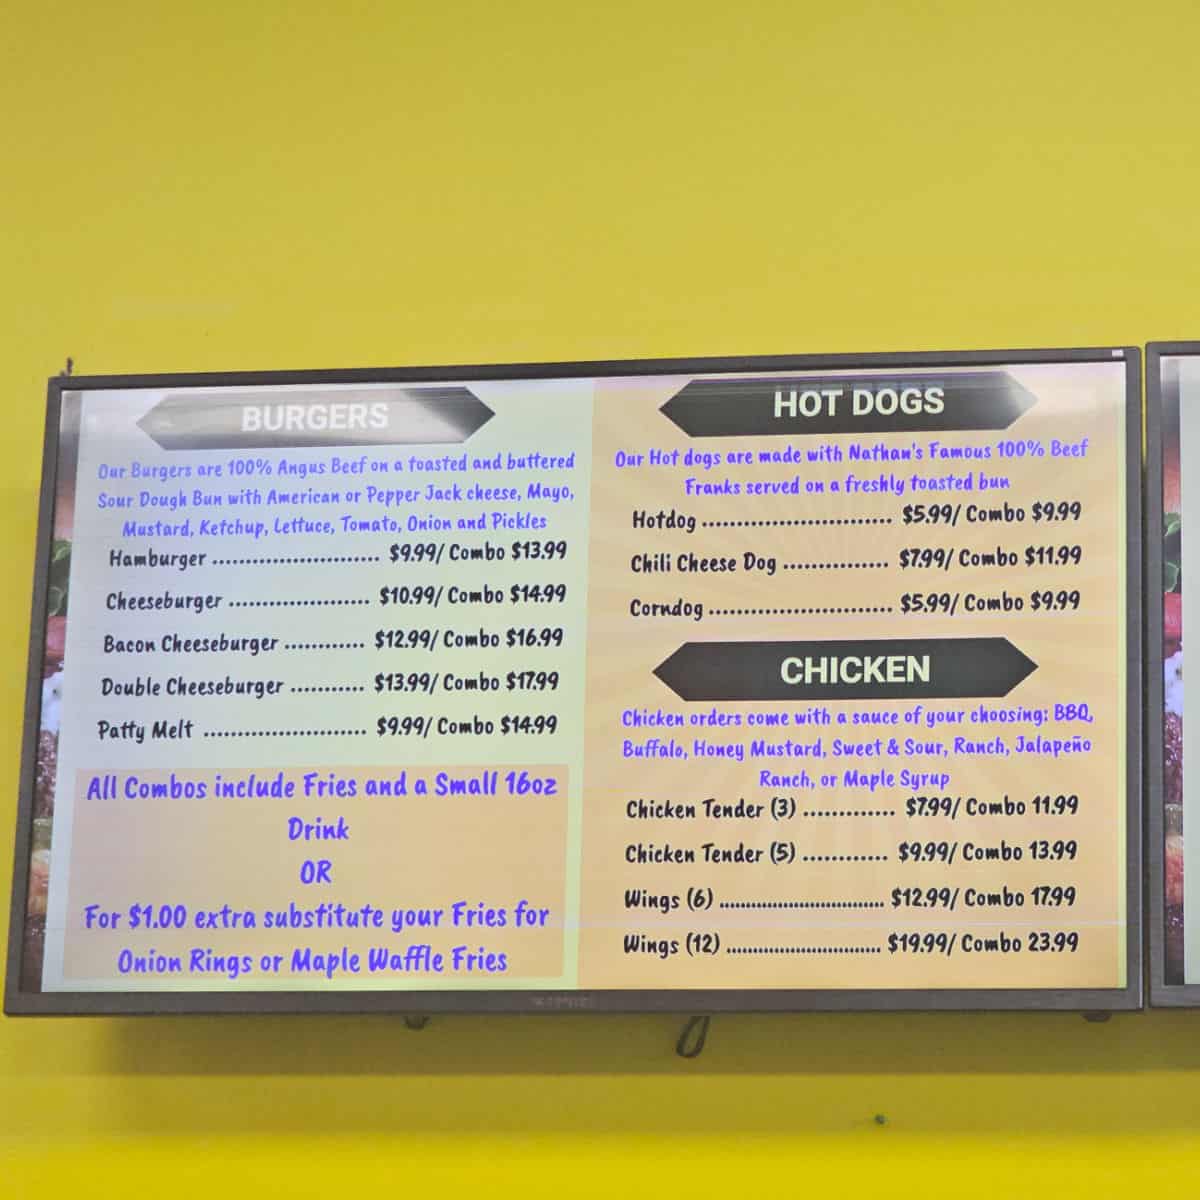 BURGERS
Our Burgers are 100% Angus Beef on a toasted and buttered
Sour Dough Bun with American or Pepper Jack cheese, Mayo,
Mustard, Ketchup, Lettuce, Tomato, Onion and Pickles
Hamburger ......................... $9.99/ Combo $13.99
Cheeseburger ..................... $10.99/ Combo $14.99
Bacon Cheeseburger ............ $12.99/ Combo $16.99
Double Cheeseburger ........... $13.99/ Combo $17.99
Patty Melt ......................... $9.99/ Combo $14.99
All Combos include Fries and a Small 16oz
Drink
OR
For $1.00 extra substitute your Fries for
Onion Rings or Maple Waffle Fries
HOT DOGS
Our Hot dogs are made with Nathan's Famous 100% Beef
Franks served on a freshly toasted bun
Hotdog ............................. $5.99/ Combo $9.99
Chili Cheese Dog ................ $7.99/ Combo $11.99
Corndog ............................ $5.99/ Combo $9.99
CHICKEN
Chicken orders come with a sauce of your choosing: BBQ,
Buffalo, Honey Mustard, Sweet & Sour, Ranch, Jalapeño
Ranch, or Maple Syrup
Chicken Tender (3) .............. $7.99/ Combo 11.99
Chicken Tender (5) ............. $9.99/ Combo 13.99
Wings (6) .............................. $12.99/ Combo 17.99
Wings (12) ............................ $19.99/ Combo 23.99